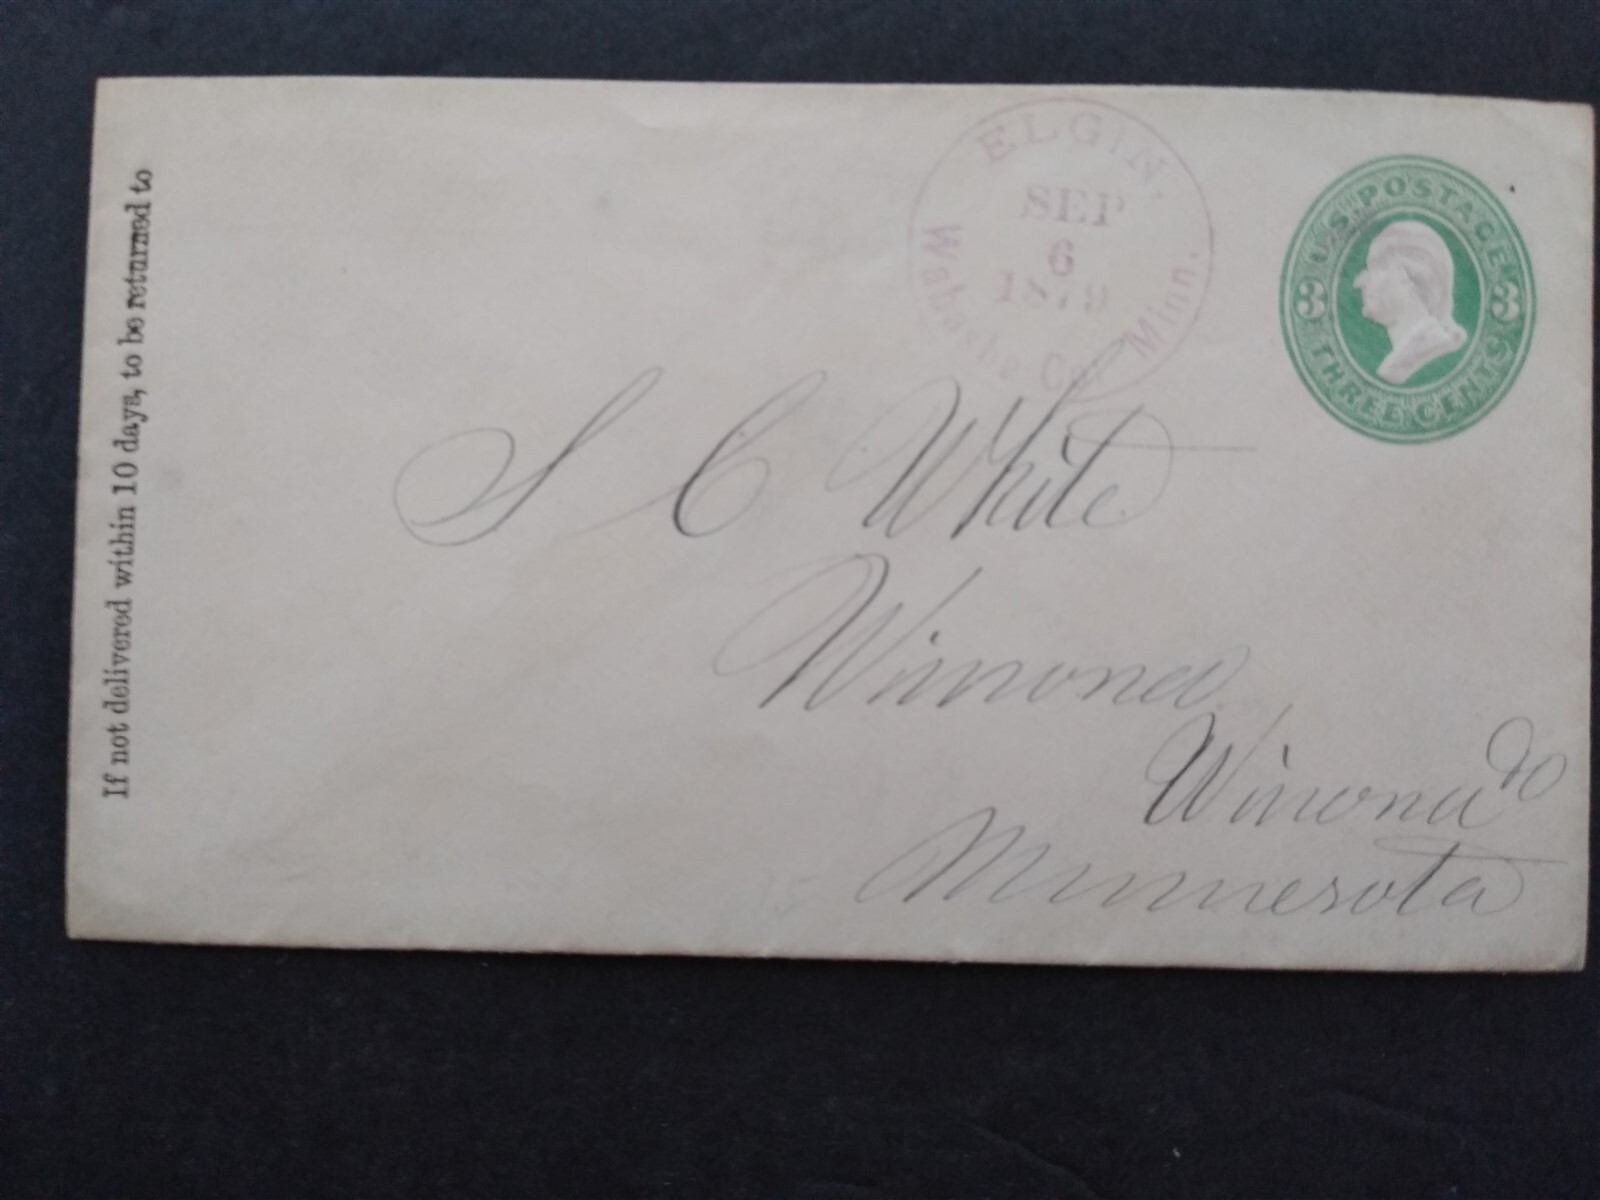 If not delivered within 10 days, to be returned to
ELGIN.
SEP
6
1879
Wabasha Co. Minn.
U.S. POSTAGE
3 3
THREE CENTS
S C White
Winona
Winona Co
Minnesota